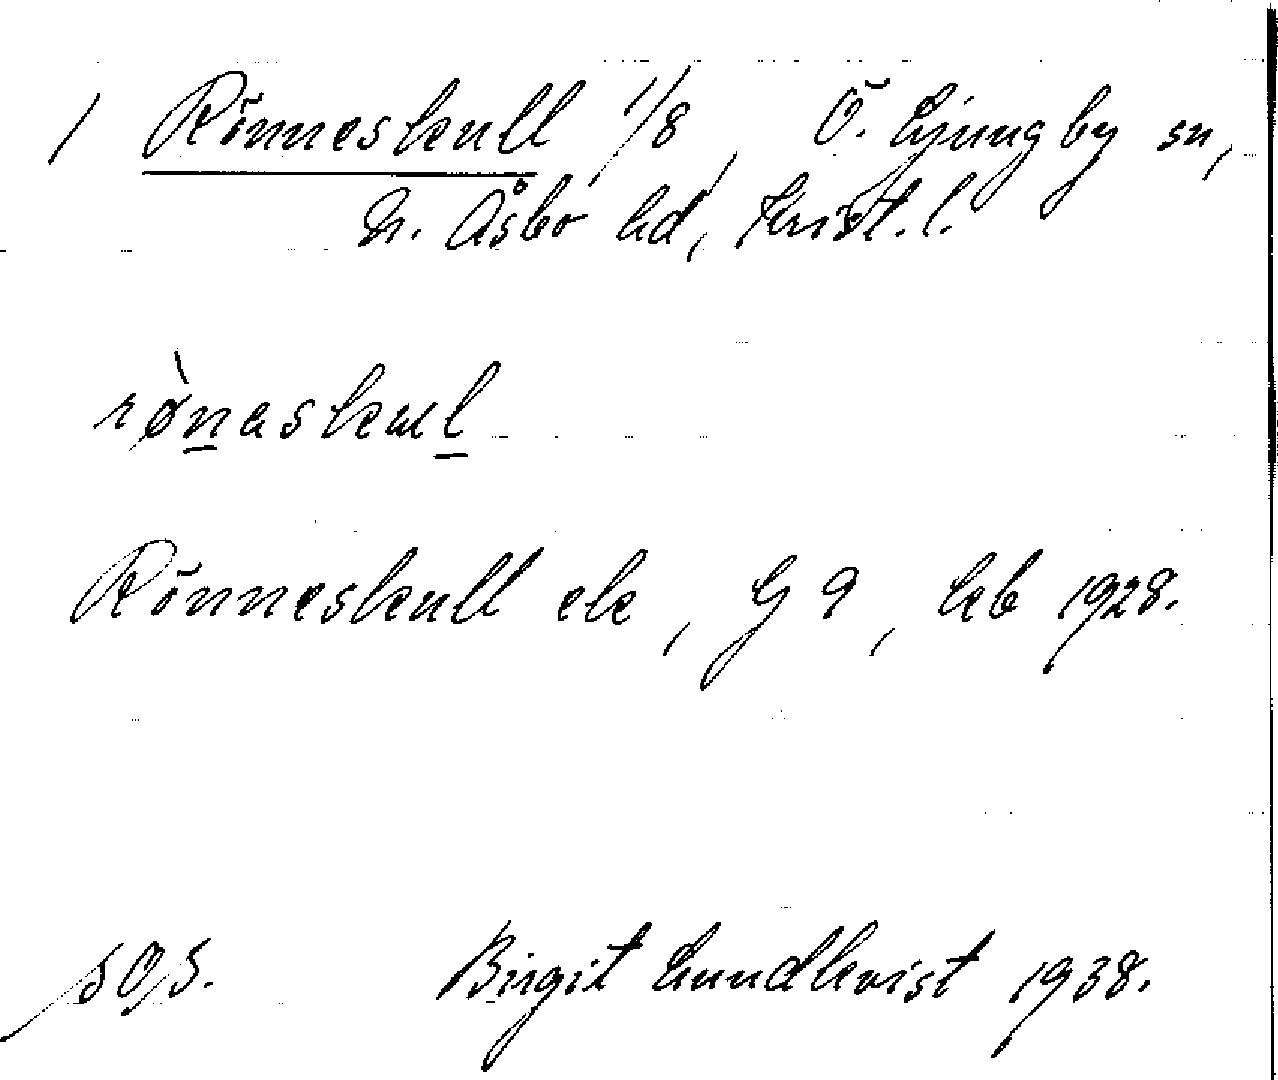 1 Rönneskull 1/8, Ö. Ljungby sn,
N. Åsbo hd, Krist. l.
rø̀naskul
Rönneskull ek, G 9, kb 1928.
SOS. Birgit Lundkvist 1938.